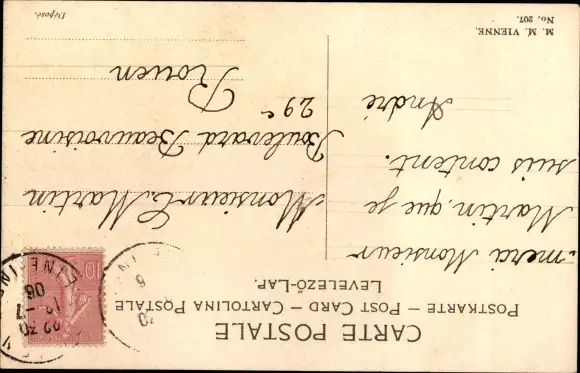 CARTE POSTALE
POSTKARTE – POST CARD – CARTOLINA POSTALE
LEVELEZŐ-LAP.
merci Monsieur
Martin, que je
suis content.
André
M. M. VIENNE,
No. 207.
Monsieur E. Martin
Boulevard Beauvoisine
29e
Rouen
Déposé.
10
22 30
06